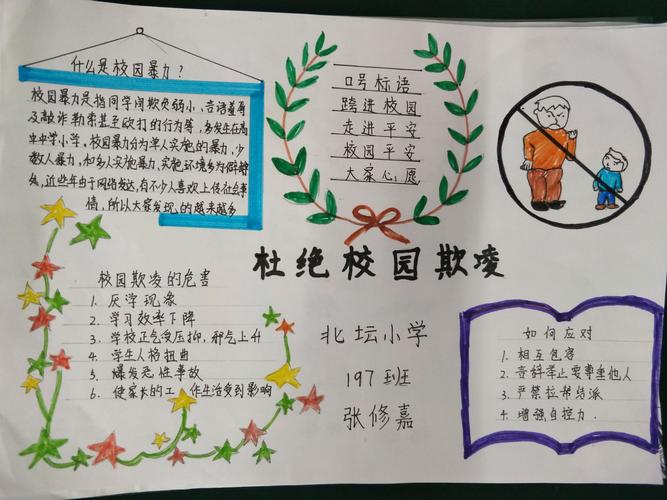 什么是校园暴力？
校园暴力是指同学间欺负弱小、言语羞辱
及敲诈勒索甚至殴打的行为等，多发生在高
中中学小学，校园暴力分为单人实施的暴力，少
数人暴力，和多人实施暴力，实施环境多为僻静
处，近些年由于网络发达，有不少人喜欢上传社会事
情，所以大家发现的越来越多
口号标语
跨进校园
走进平安
校园平安
大家心愿
杜绝校园欺凌
校园欺凌的危害
1. 厌学现象
2. 学习效率下降
3. 学校正气受压抑，邪气上升
4. 学生人格扭曲
5. 爆发恶性事故
6. 使家长的工作生活受到影响
北坛小学
197班
张修嘉
如何应对
1. 相互包容
2. 言行举止要尊重他人
3. 严禁拉帮结派
4. 增强自控力.